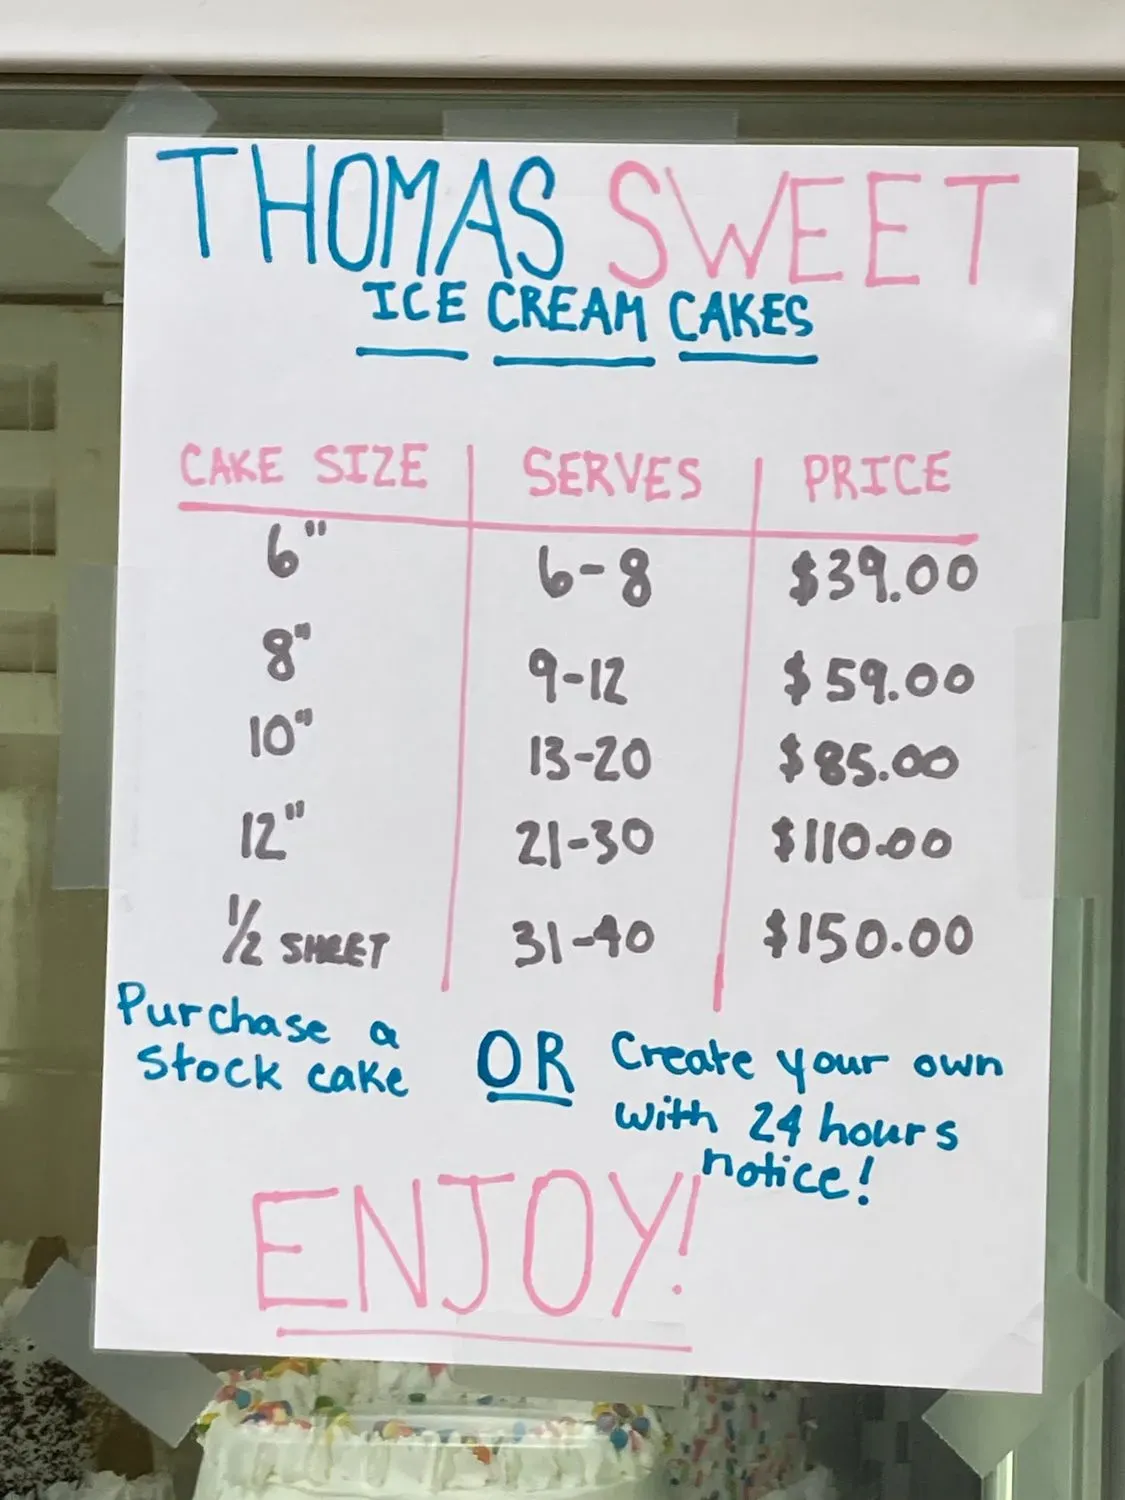 THOMAS SWEET
ICE CREAM CAKES
CAKE SIZE SERVES PRICE
6" 6-8 $39.00
8" 9-12 $59.00
10" 13-20 $85.00
12" 21-30 $110.00
1/2 SHEET 31-40 $150.00
Purchase a
stock cake
OR
Create your own
with 24 hours
notice!
ENJOY!